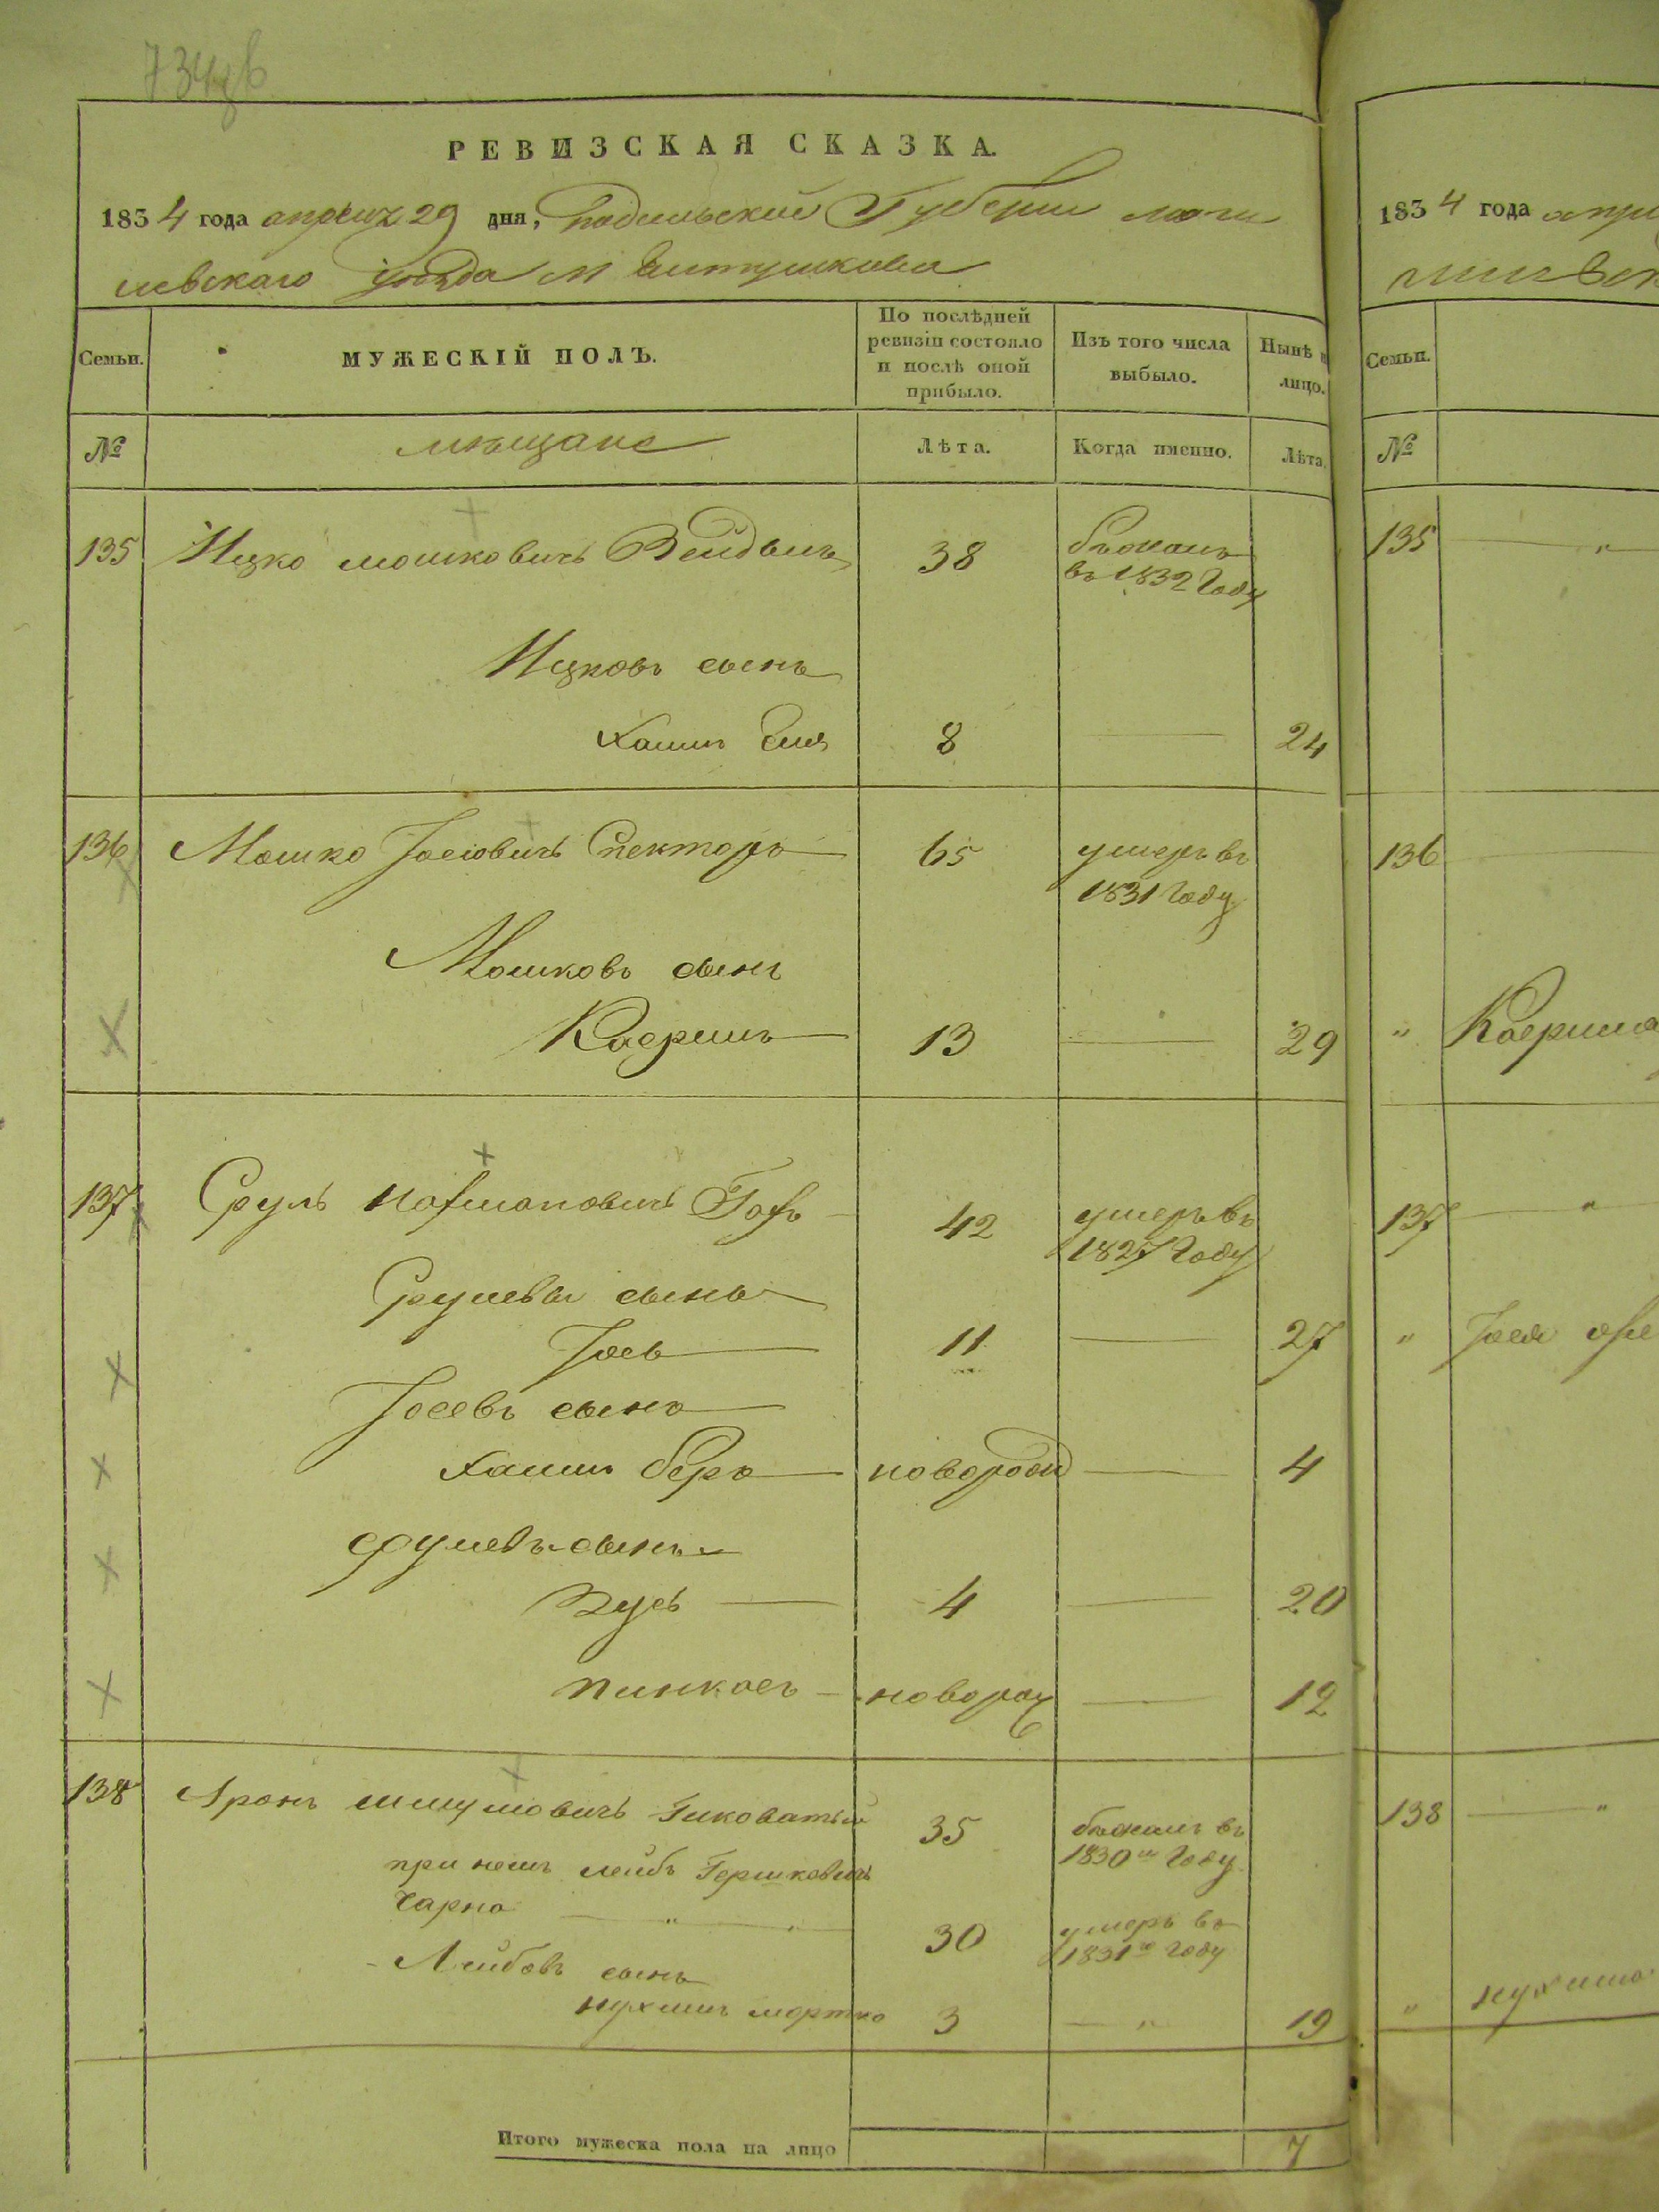 РЕВИЗСКАЯ СКАЗКА.
1834 года апреля 29 дня, Подольской Губернии моги
левского уезда м
Семьи. МУЖЕСКІЙ ПОЛЪ. По послѣдней ревизіи состояло и послѣ оной прибыло. Изъ того числа выбыло. Нынѣ н лицо.
№ мещане Лѣта. Когда именно. Лѣта.
135 Ицко мошковичъ 38 бежалъ въ 1832 Году
Ицковъ сынъ
Хаимъ Еля 8 24
136 Мошко Іосіовичъ Спекторъ 65 умеръ въ 1831 Году
Мошковъ сынъ
Касриль 13 29
137 Сруль Нафмановичъ 42 умеръ въ 1827 Году
Срулевы сыны
Іось 11 27
Іосевъ сынъ
Хаимъ берко новорожд 4
срулевъ сынъ
Зусь 4 20
пинкасъ новорож 12
138 Аронъ шмулмовичъ Гиковатый 35 бежалъ въ 1830м Году
при немъ лейбъ Гершковичъ
Чарно 30 умеръ въ 1831м Году
Лейбовъ сынъ
нухимъ мортко 3 19
Итого мужеска пола на лицо 7
1834 года апрел
Семьи.
№
135
136
" Касрила
137
" Іося
138
" нухима